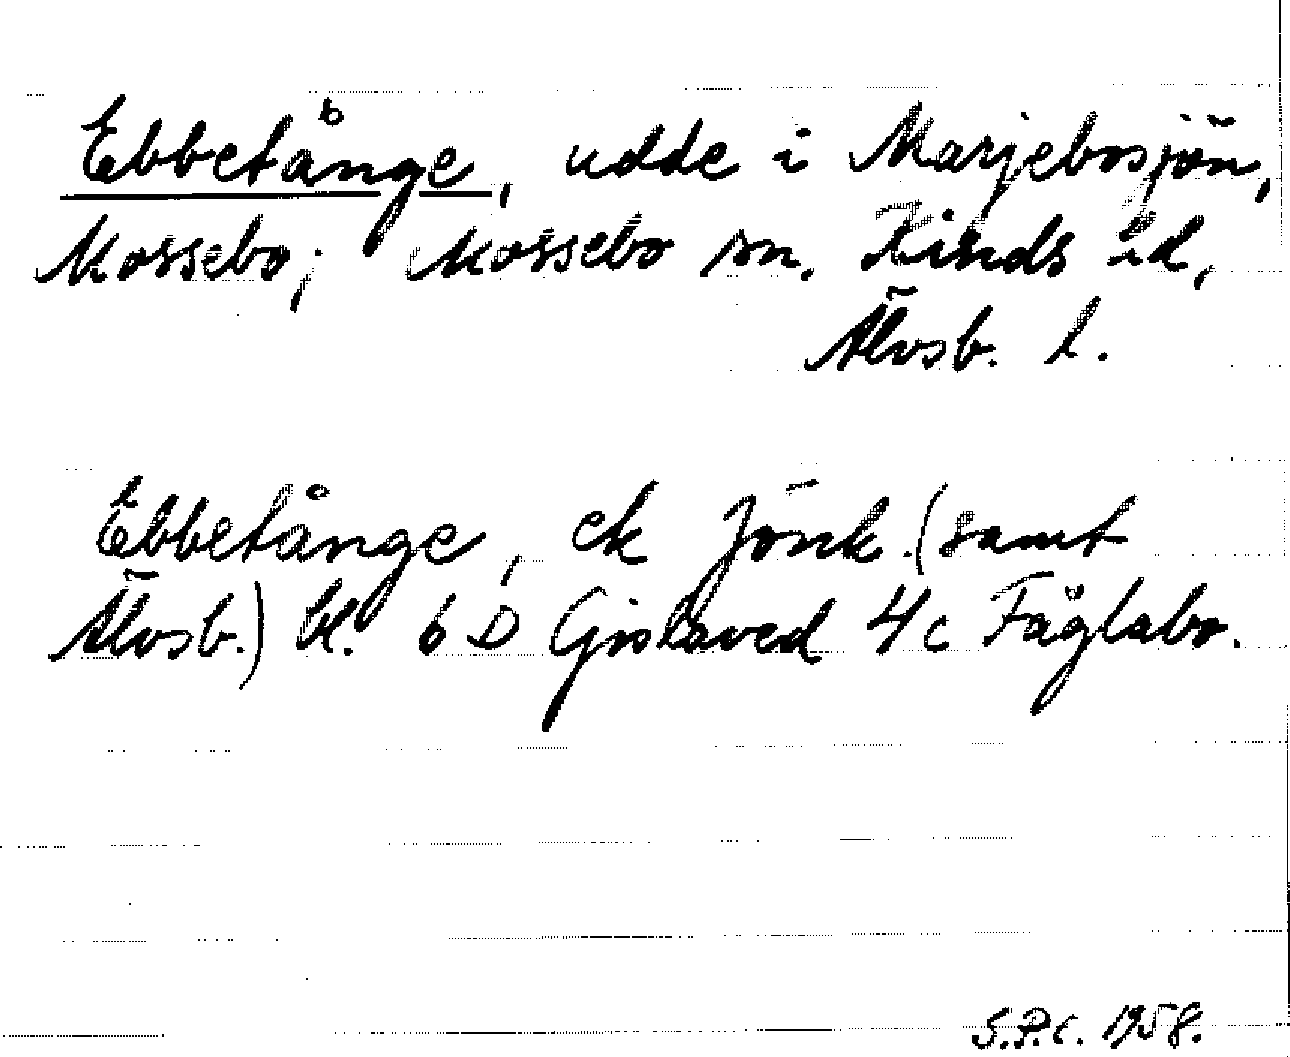 Ebbetånge, udde i Marjebosjön,
Mossebo; Mossebo sn. Kinds hd,
Älvsb. l.
Ebbetånge, ek Jönk. (samt
Älvsb.) bl. 6 D Gislaved 4c Fåglabo.
S.P.C. 1958.